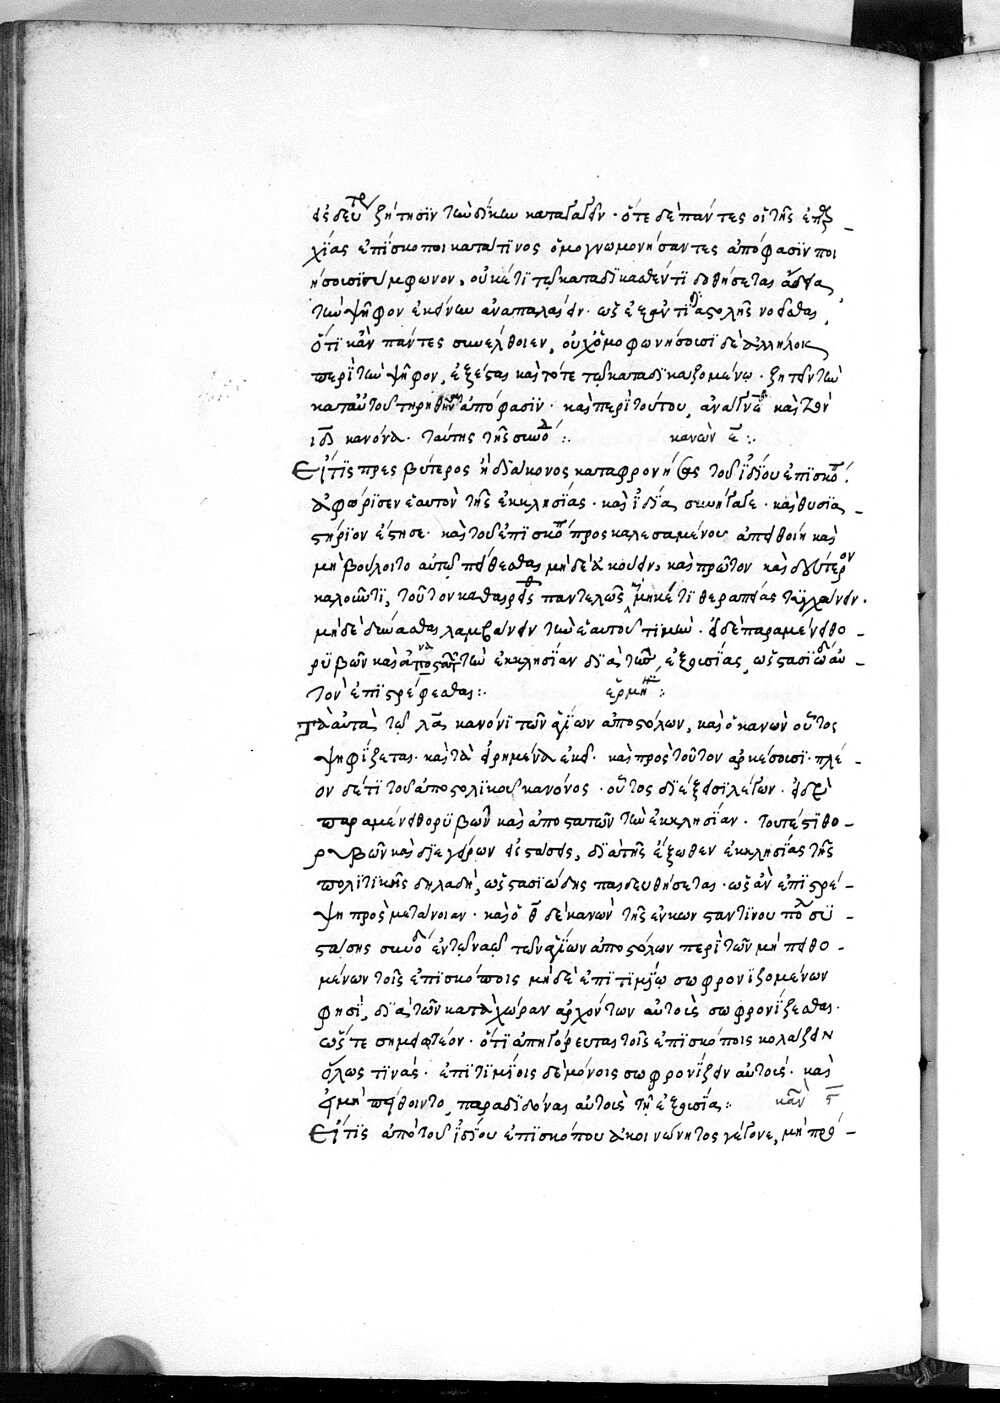 εἰς δευτέ ζήτησιν τῶν δικῶν κατάγειν · ὅτε δὲ πάντες οἱ τῆς ἐπαρ -
χίας ἐπίσκοποι κατά τινος ὁμογνωμονήσαντες ἀπόφασιν ποι
ήσοισι σύμφωνον, οὐκέτι τῷ καταδικασθέντι δοθήσεται ἄδεια,
τὴν ψῆφον ἐκείνων ἀναπαλαίειν · ὥστε
ὅτι κἂν πάντες συνέλθοιεν, οὐχ ὁμοφωνήσοισι δὲ ἀλλήλοις
περὶ τὴν ψῆφον, ἐξέσται καὶ τότε τῷ καταδικαζομένῳ · ζητεῖν τὴν
κατ' αὐτοῦ ἀπόφασιν · καὶ περὶ τούτου, ἀνάγνωθι καὶ τὸν
ιδ κανόνα · ταύτης τῆς συνό :. κανὼν ε :.
Εἴ τις πρεσβύτερος ἢ διάκονος καταφρονήσας τοῦ ἰδίου ἐπισκό :
ἀφώρισεν ἑαυτὸν τῆς ἐκκλησίας · καὶ ἰδίᾳ συνήγαγε · καὶ θυσια -
στήριον ἔστησε · καὶ τοῦ ἐπισκό προσκαλεσαμένου ἀπειθοίη καὶ
μὴ βούλοιτο αὐτῷ πείθεσθαι μηδὲ ἀκούειν, καὶ πρῶτον καὶ δεύτερον
καλοῦντι, τοῦτον καθαιρεῖσθαι παντελῶς μηκέτι θεραπείας τυγχάνειν ·
μηδὲ δύνασθαι λαμβάνειν τὴν ἑαυτοῦ τιμήν · εἰ δὲ παραμένει θο -
ρυβῶν καὶ ἀναστατῶν τὴν ἐκκλησίαν διὰ τῆς ἔξω ἐξουσίας ὡς στασιώδη αὐ
τὸν ἐπιστρέφεσθαι :. ἑρμη :.
Τὰ αὐτὰ τῷ λα κανόνι τῶν ἁγίων ἀποστόλων, καὶ ὁ κανὼν οὗτος
ψηφίζεται · καὶ τὰ εἰρημένα ἐκεῖ · καὶ πρὸς τοῦτον ἀρκέσοισι · πλέ -
ον δέ τι τοῦ ἀποστολικοῦ κανόνος · οὗτος διέξεισι λέγων · εἰ δὲ
παραμένει θορυβῶν καὶ ἀποστατῶν τὴν ἐκκλησίαν · τουτέστι θο -
ρυβῶν καὶ διεγείρων εἰς στάσεις, διὰ τῆς ἔξωθεν ἐκκλησίας τῆς
πολιτικῆς δηλαδὴ, ὡς στασιώδης παιδευθήσεται · ὡς ἂν ἐπιστρέ -
ψῃ πρὸς μετάνοιαν · καὶ ὁ θ δὲ κανὼν τῆς ἐν κωνσταντίνου πό συ -
στάσης συνό ἐν τῷ ναῷ τῶν ἁγίων ἀποστόλων περὶ τῶν μὴ πειθο -
μένων τοῖς ἐπισκόποις μηδὲ ἐπιτιμίῳ σωφρονιζομένων
φησὶ, διὰ τῶν κατὰ χώραν ἀρχόντων αὐτοὺς σωφρονίζεσθαι ·
ὥστε σημειωτέον · ὅτι ἀπηγόρευται τοῖς ἐπισκόποις κολάζειν
ὅλως τινάς · ἐπιτιμίοις δὲ μόνοις σωφρονίζειν αὐτούς · καὶ
εἰ μὴ πείθοιντο, παραδιδόναι αὐτοὺς τῇ ἐξουσίᾳ :. κανὼν ϛ
Εἴ τις ἀπὸ τοῦ ἰδίου ἐπισκόπου ἀκοινώνητος γέγονε, μὴ πρό -